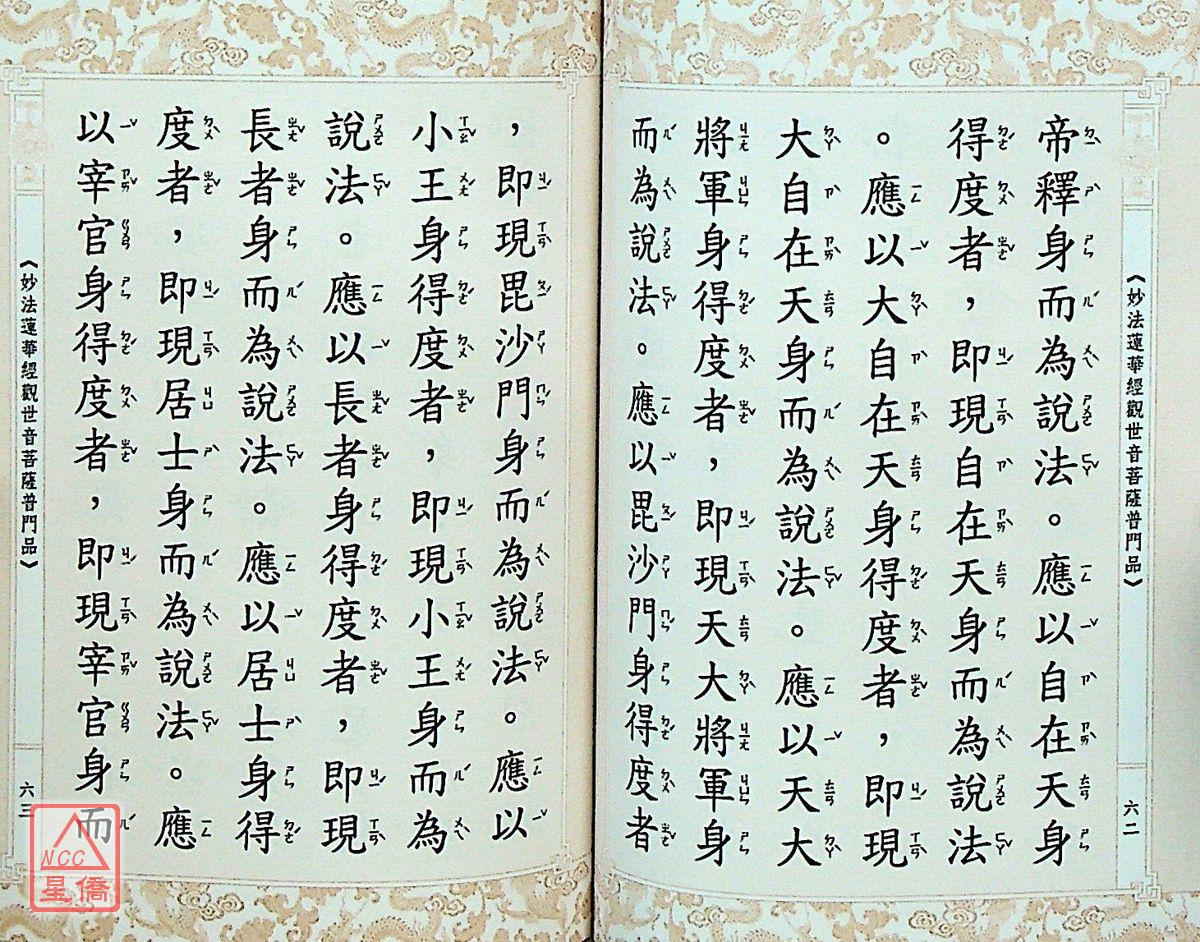 《妙法蓮華經觀世音菩薩普門品》
六二
帝釋身而為說法。應以自在天身
得度者，即現自在天身而為說法
。應以大自在天身得度者，即現
大自在天身而為說法。應以天大
將軍身得度者，即現天大將軍身
而為說法。應以毘沙門身得度者
，即現毘沙門身而為說法。應以
小王身得度者，即現小王身而為
說法。應以長者身得度者，即現
長者身而為說法。應以居士身得
度者，即現居士身而為說法。應
以宰官身得度者，即現宰官身而
《妙法蓮華經觀世音菩薩普門品》
六三
NCC
星僑